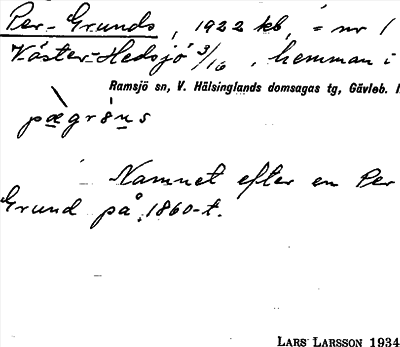 Per-Grunds, 1922 kb, = nr 1
Väster-Hedsjö 3/16, hemman i
Ramsjö sn, V. Hälsinglands domsagas tg, Gävleb. l
pægrúns
Namnet efter en Per
Grund på 1860-t.
LARS LARSSON 1934